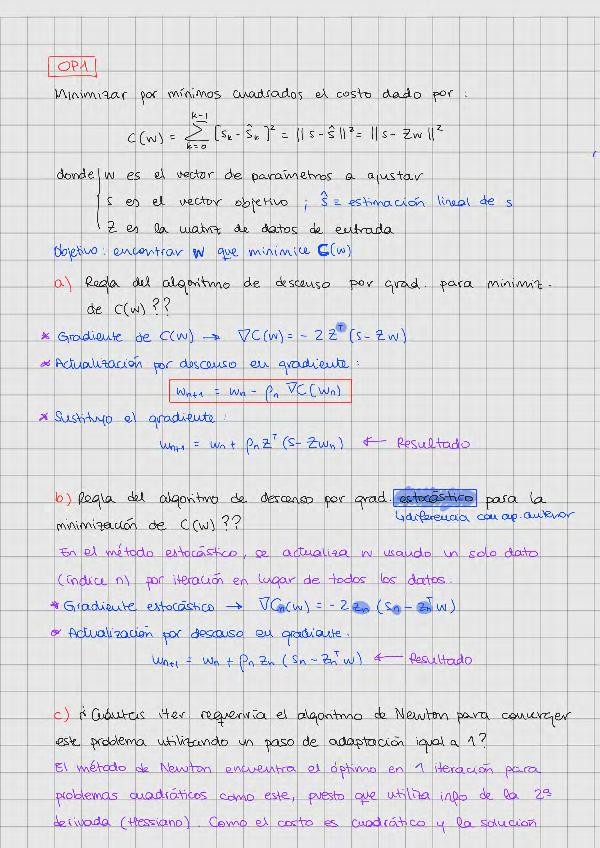 OP1
Minimizar por mínimos cuadrados el costo dado por :
C(w) = Σ_{k=0}^{k-1} [s_k - ŝ_k]² = || s - ŝ ||² = || s - Zw ||²
donde | w es el vector de parámetros a ajustar
| s es el vector objetivo ; ŝ = estimación lineal de s
Z es la matriz de datos de entrada
Objetivo : encontrar w que minimice C(w)
a) Regla del algoritmo de descenso por grad. para minimiz.
de C(w) ??
* Gradiente de C(w) → ∇C(w) = - 2 Z^T (s - Zw)
* Actualización por descenso en gradiente :
w_{n+1} = w_n - ρ_n ∇C(w_n)
* Sustituyo el gradiente :
w_{n+1} = w_n + ρ_n Z^T (s - Zw_n) ← Resultado
b) Regla del algoritmo de descenso por grad. estocástico para la
↳ diferencia con ap. anterior
minimización de C(w) ??
En el método estocástico, se actualiza w usando un solo dato
(índice n) por iteración en lugar de todos los datos.
* Gradiente estocástico → ∇C_n(w) = - 2 z_n (s_n - z_n^T w)
* Actualización por descenso en gradiente.
w_{n+1} = w_n + ρ_n z_n (s_n - z_n^T w) ← Resultado
c) ¿Cuántas iter requeriría el algoritmo de Newton para converger
este problema utilizando un paso de adaptación igual a 1?
El método de Newton encuentra el óptimo en 1 iteración para
problemas cuadráticos como este, puesto que utiliza info de la 2ª
derivada (Hessiano). Como el costo es cuadrático y la solución